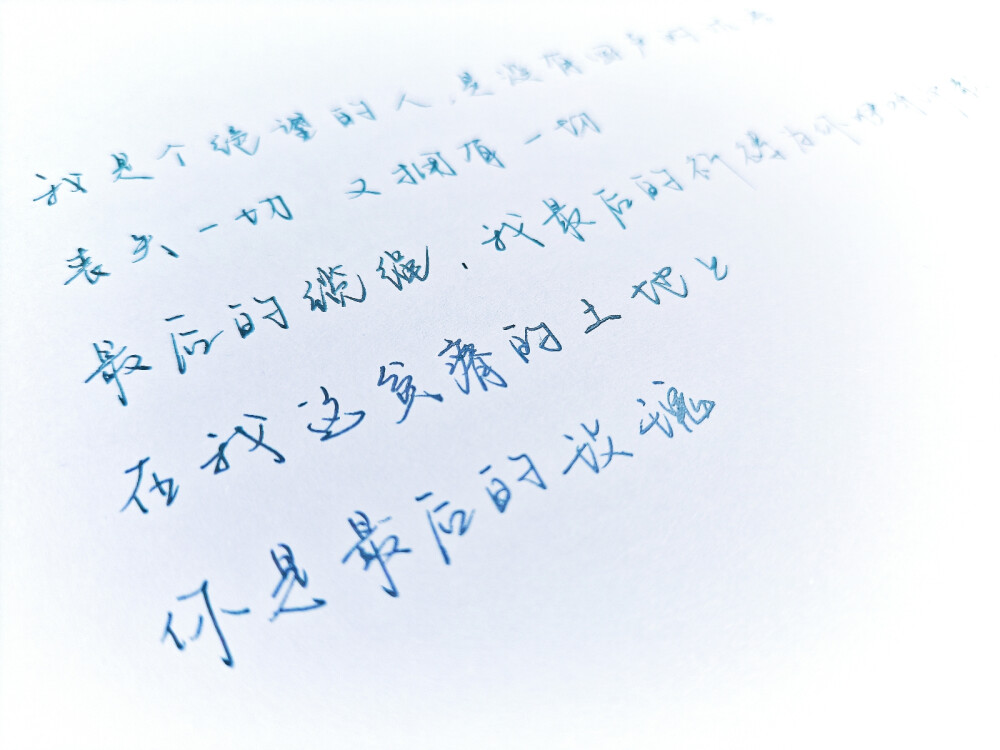 我是个绝望的人,是没有回声的
丧失一切 又拥有一切
最后的缆绳,我最后的
在我这贫瘠的土地上
你是最后的玫瑰